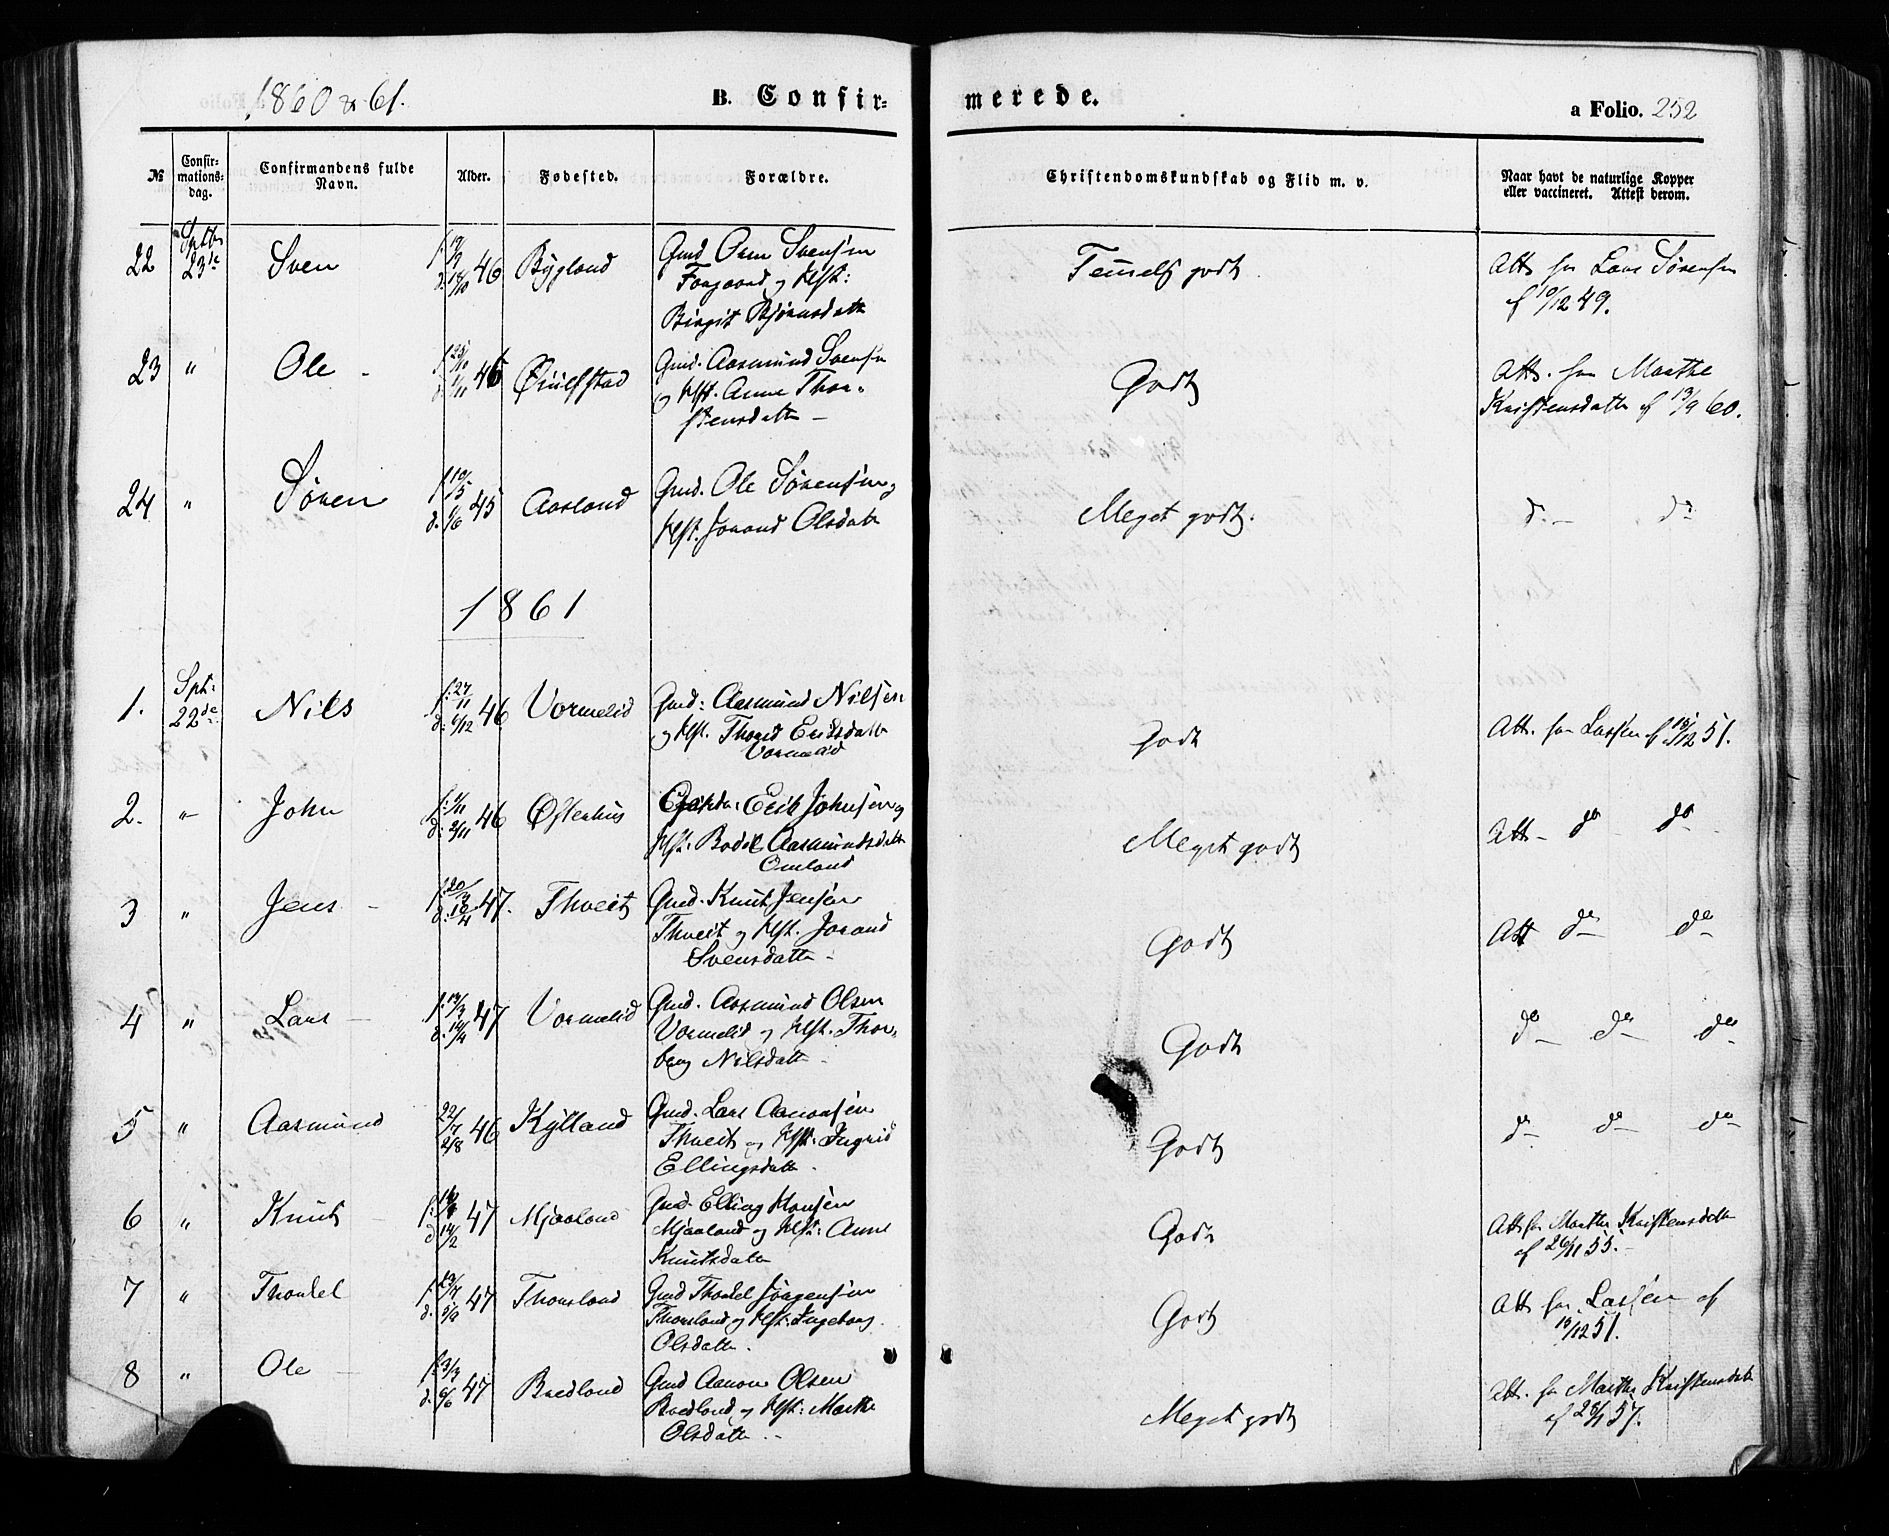 1860 & 61.
B. Confirmerede.
a Folio. 252
№
Confir-
mations-
dag.
Confirmandens fulde
Navn.
Alder.
Fødested.
Forældre.
Christendomskundskab og Flid m. v.
Naar havt de naturlige Kopper
eller vaccineret. Attest derom.
22 Sptb 23de Sven 46 Bygland
Gmd Svensen
og Hst:
Birgit Bjørnsdatt
Temelig godt
Att. fra Lars Sørensen
af 10/12 49.
23 " Ole - 46
Gmd. Aasmund Svensen
og Hst. Anne Thor-
stensdatte -
Godt
Att. fra Marthe
Kristensdatte af 13/9 60.
24 " Søren f 10/5 d. 1/6 45 Aasland
Gmd. Ole Sørensen og
Hst. Jorand Olsdatte
Meget godt.
d. - do
1861
1. Spt: 22de Nils f: 27/11 d: 6/12 46 Vormelid
Gmd: Aasmund Nilsen
og Hst. Thorid Eriksdatte
Vormelid
Godt
Att. fra Lassen af 18/12 51.
2. " John 46 Østerhus
Erik Johnsen og
Hst: Bodil Aasmundsdatt
Omland
Meget godt
Att - do do
3 " Jens - f 20/3 d. 18/4 47. Thveit
Gmd. Knut Jensen
Thveit og Hst. Jorand
Svensdatte -
Godt
Att do do
4 " Lars - 47 Vormelid
Gmd. Aasmund Olsen
Vormelid og Hst. Thor-
berg Nilsdatte -
Godt
do do do
5 " Aasmund 22/7 2/8 46 Kylland
Gmd. Lars Aanonsen
Thveit og Hst: Ingrid
Ellingsdatte.
Godt
do do do
6 " Knut - d 14/2 47 Mjaaland
Gmd. Elling Hansen
Mjaaland og Hst: Anne
Knutsdatte
Godt
Att fra Marthe Kristensdatte
af 26/11 55. -
7 " Thorkel 47 Thorsland
Gmd Thorkel Jørgensen
Thorsland og Hst: Ingeborg
Olsdatte.
Godt
Att fra Lassen af
18/12 51.
8 " Ole - f 23/3 d. 6/6 47 Bredland
Gmd Aanon Olsen
Bredland og Hst: Marthe
Olsdatte -
Meget godt
Att. fra Marthe Kristensdatt
af 28/1 57.